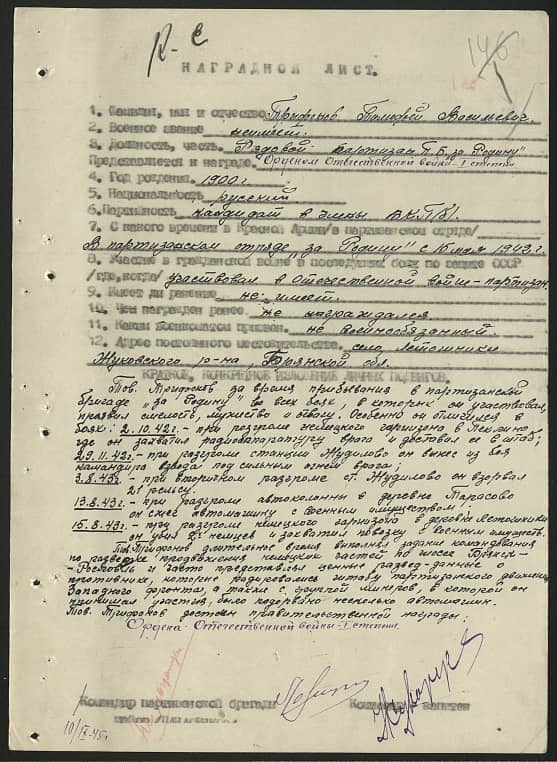 НАГРАДНОЙ ЛИСТ.
1. Фамилия, имя и отчество Трифонов Тимофей Васильевич.
2. Военное звание не имеет.
3. Должность, часть. Рядовой партизан П.Б. "за Родину"
Представляется к награде. Орденом Отечественной войны-I степени
4. Год рождения. 1900 г.
5. Национальность русский
6. Партийность кандидат в члены ВКП/б/.
7. С какого времени в Красной Армии/в партизанском отряде/
В партизанском отряде "за Родину" с 15 мая 1942 г.
8. Участие в гражданской войне и последующих боях по защите СССР
/где, когда/ участвовал в Отечественной войне-партизан.
9. Имеет ли ранение не имеет.
10. Чем награжден ранее. не награждался.
11. Каким военкоматом призван. не военнообязанный.
12. Адрес постоянного местожительства. село Летошники
Жуковского р-на, Брянской обл.
КРАТКОЕ, КОНКРЕТНОЕ ИЗЛОЖЕНИЕ ЛИЧНЫХ ПОДВИГОВ.
Тов. Трифонов за время прибывания в партизанской
бригаде "за Родину" во всех боях, в которых он участвовал,
проявил смелость, мужество и отвагу. Особенно он отличился в
боях: 2.10.42г.- при разгроме немецкого гарнизона в Пеклино
где он захватил радиоаппаратуру врага и доставил её в штаб;
29.11.42г.- при разгроме станции Жудилово он вынес из боя
командира взвода под сильным огнём врага;
3.8.43г.- при вторичном разгроме ст. Жудилово он взорвал
21 рельс.
13.8.43г.- при разгроме автоколонны в деревне Тарасово
он сжег автомашину с военным имуществом.
15.8.43г.- при разгроме немецкого гарнизона в деревне Летошники
он убил немцев и захватил повозку с военным имуществ.
Тов. Трифонов длительное время выполнял задания командования
по разведке продвижения немецких частей по шоссе Брянск-
Рославль и часто представлял ценные развед-данные о
противнике, которые радировались штабу партизанского движения
Западного фронта, а также с группой минеров, в которой он
принимал участие, было подорвано несколько автомашин.
Тов. Трифонов достоин правительственной награды:
Ордена Отечественной войны-I степени.
Командир партизанской бригады
майор
Комиссар капитан
10/IX-45г.